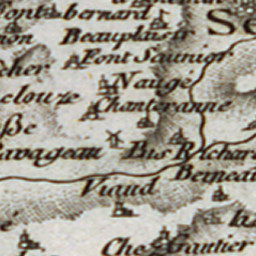 Font bernard
Beauplaisir
Font Saunior
cher
Naugé
elouze
Chanteranne
ße
avageau Bis Richar
Berneau
Viaud
Che Gautier